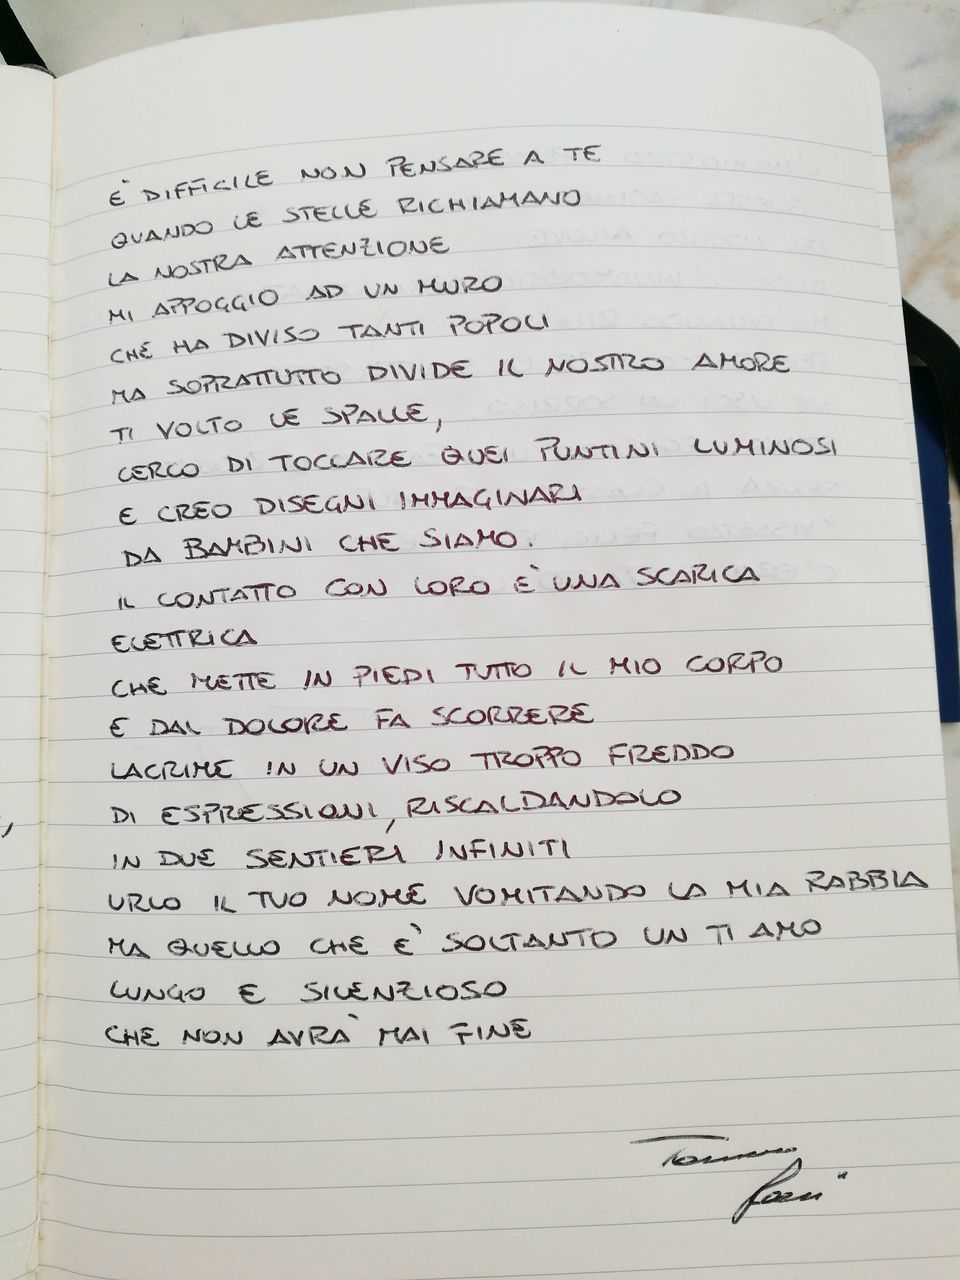 È DIFFICILE NON PENSARE A TE
QUANDO LE STELLE RICHIAMANO
LA NOSTRA ATTENZIONE
MI APPOGGIO AD UN MURO
CHE HA DIVISO TANTI POPOLI
MA SOPRATTUTTO DIVIDE IL NOSTRO AMORE
TI VOLTO LE SPALLE,
CERCO DI TOCCARE QUEI PUNTINI LUMINOSI
E CREO DISEGNI IMMAGINARI
DA BAMBINI CHE SIAMO.
IL CONTATTO CON LORO E' UNA SCARICA
ELETTRICA
CHE METTE IN PIEDI TUTTO IL MIO CORPO
E DAL DOLORE FA SCORRERE
LACRIME IN UN VISO TROPPO FREDDO
DI ESPRESSIONI, RISCALDANDOLO
IN DUE SENTIERI INFINITI
URLO IL TUO NOME VOMITANDO LA MIA RABBIA
MA QUELLO CHE E' SOLTANTO UN TI AMO
LUNGO E SILENZIOSO
CHE NON AVRÀ MAI FINE